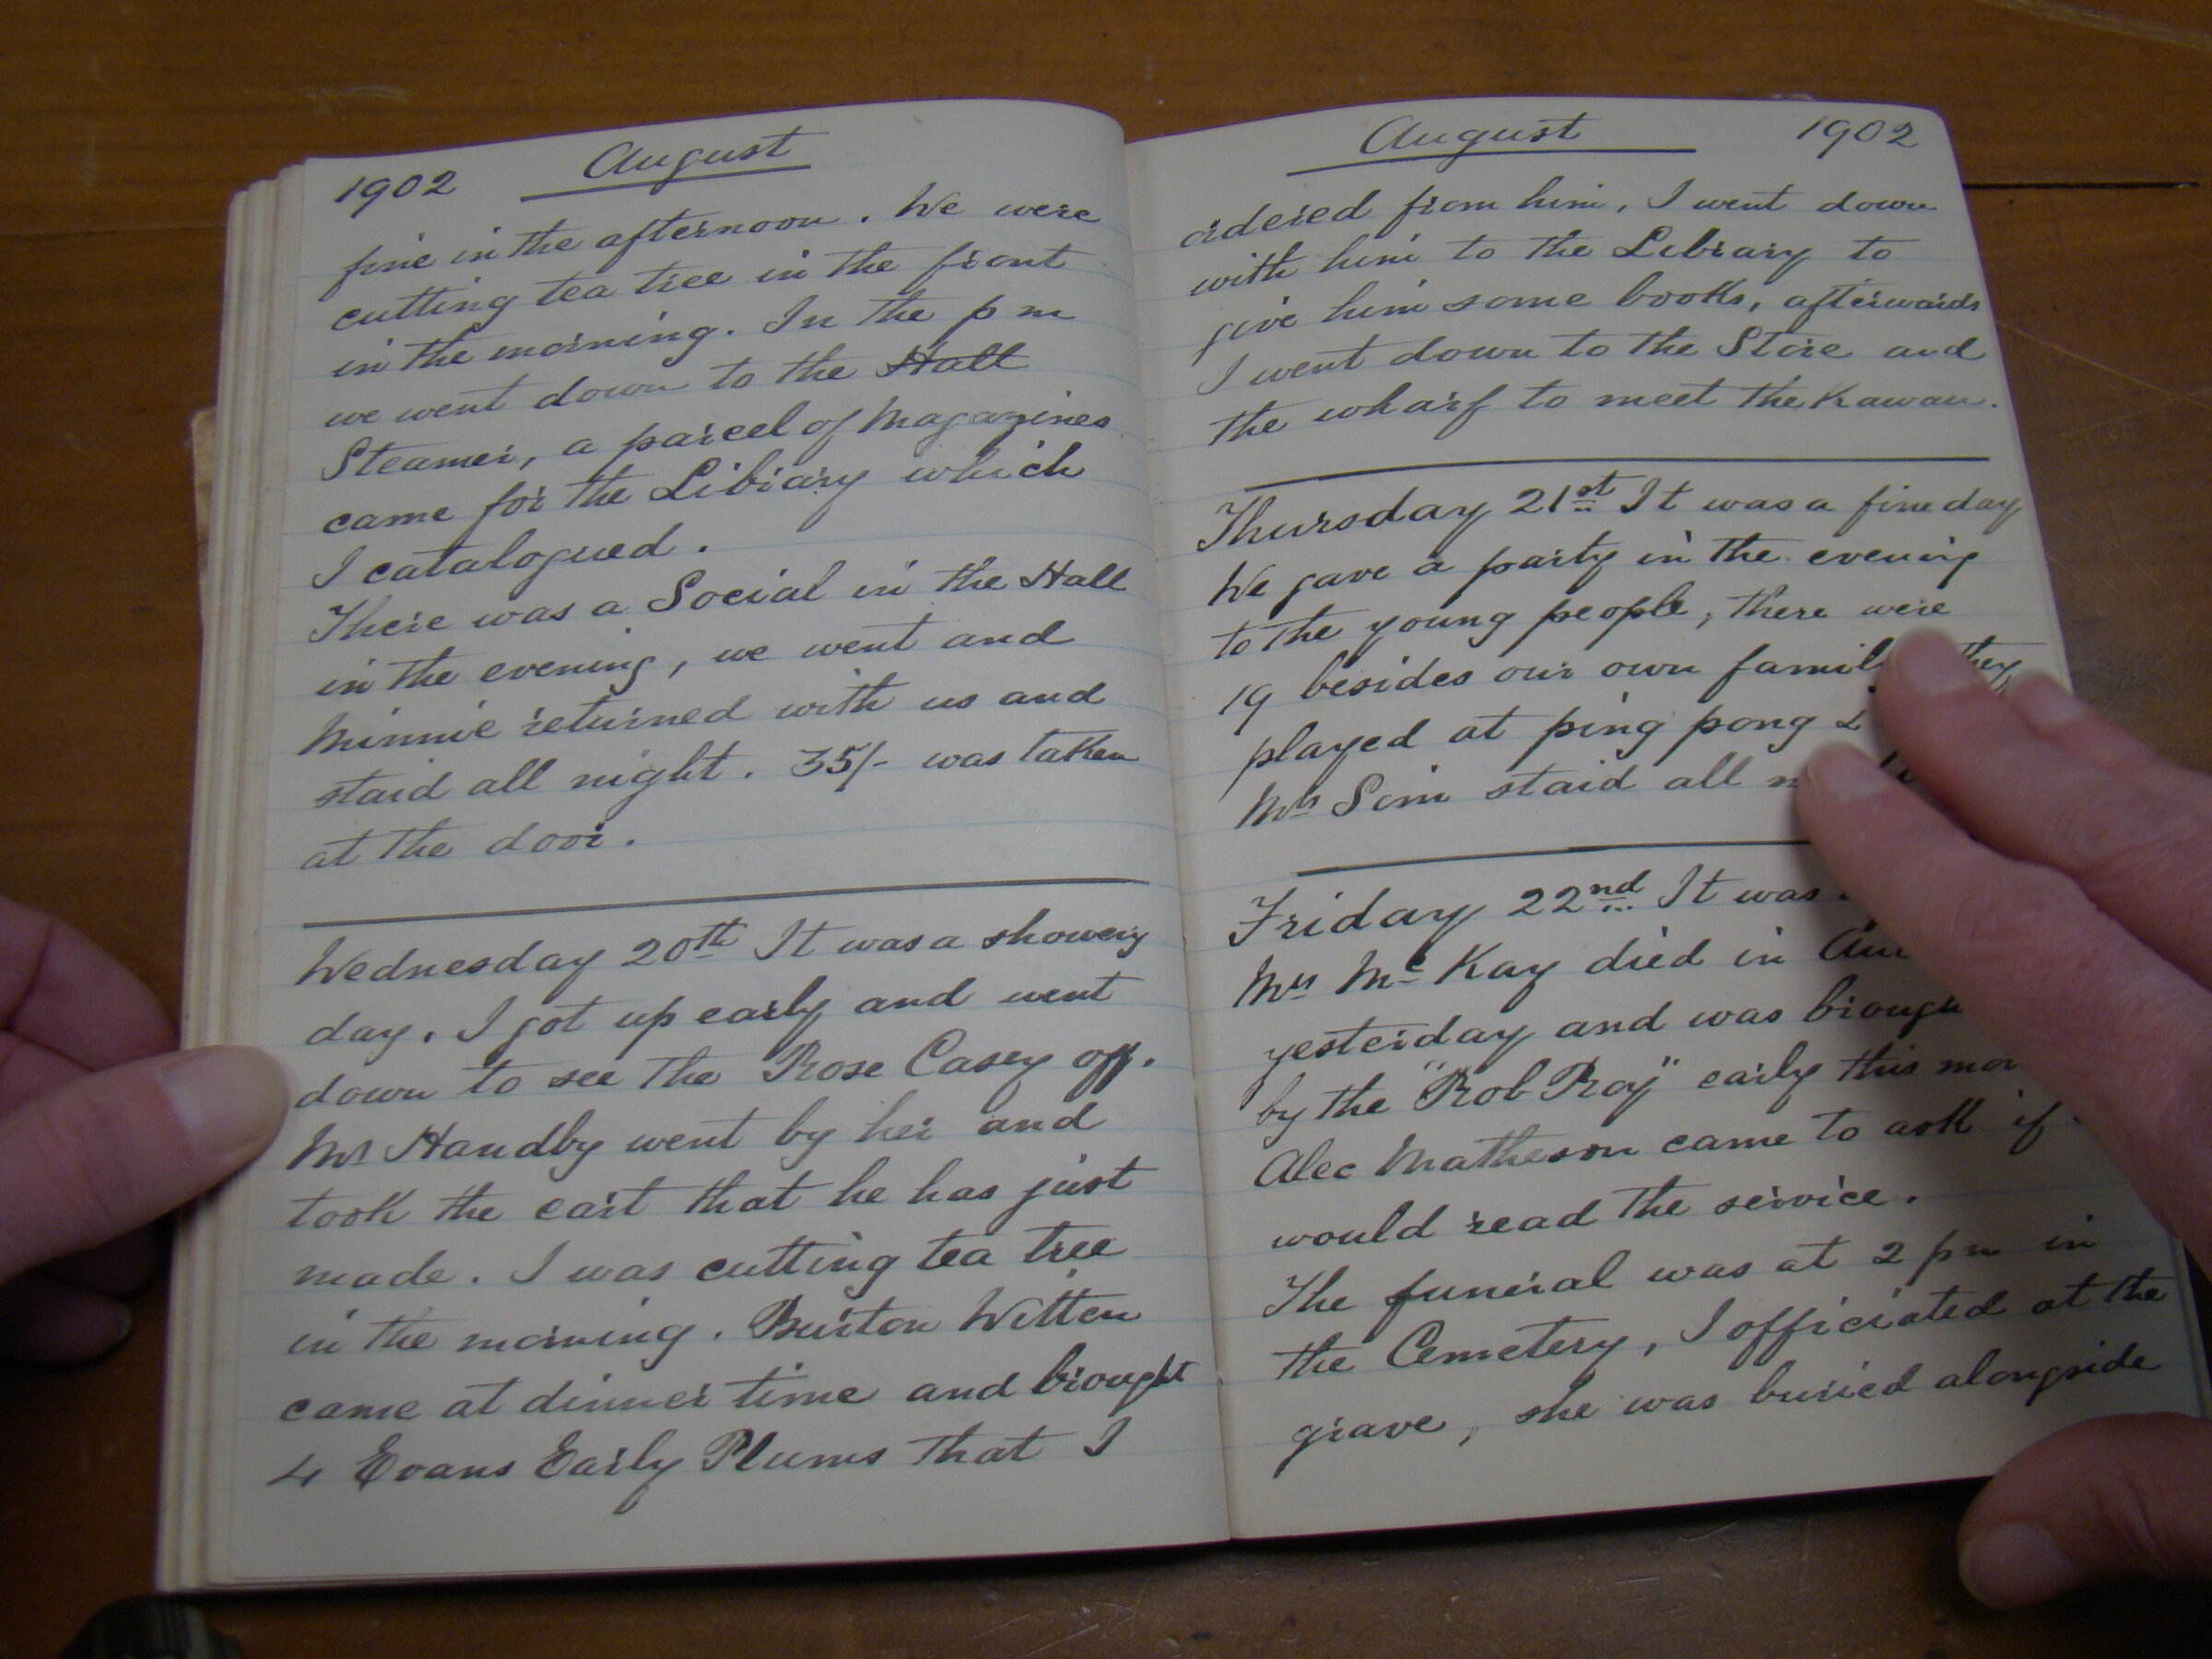 1902 August
fine in the afternoon. We were
cutting tea tree in the front
in the morning. In the p m
we went down to the Hall
Steamer, a parcel of Magazines
came for the Library which
I catalogued.
There was a Social in the Hall
in the evening, we went and
Minnie returned with us and
staid all night. 35/- was taken
at the door.
Wednesday 20th It was a showery
day. I got up early and went
down to see the Rose Casey off.
Mr Handby went by her and
took the cart that he has just
made. I was cutting tea tree
in the morning. Burton Witten
came at dinner time and brought
4 Evans Early Plums that I
August 1902
ordered from him, I went down
with him to the Library to
give him some books, afterwards
I went down to the Store and
the wharf to meet the Kawau.
Thursday 21st It was a fine day
We gave a party in the evening
to the young people, there were
19 besides our own family they
played at ping pong &
Mrs Sim staid all
Friday 22nd It was
Mrs Mc Kay died in
yesterday and was
by the "Rob Roy" early this
Alec Matheson came to ask if
would read the service.
The funeral was at 2 p m in
the Cemetery, I officiated at the
grave, she was buried alongside